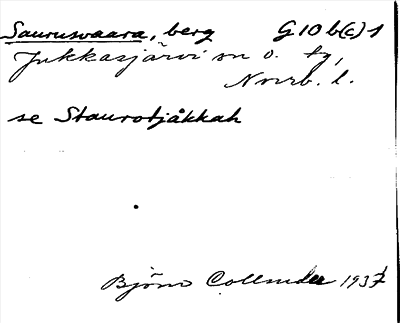 Saurusvaara, berg G10b(c)1
Jukkasjärvi sn o. tg,
Norrb. l.
se Staurotjåkkah
Björn Collinder 1937